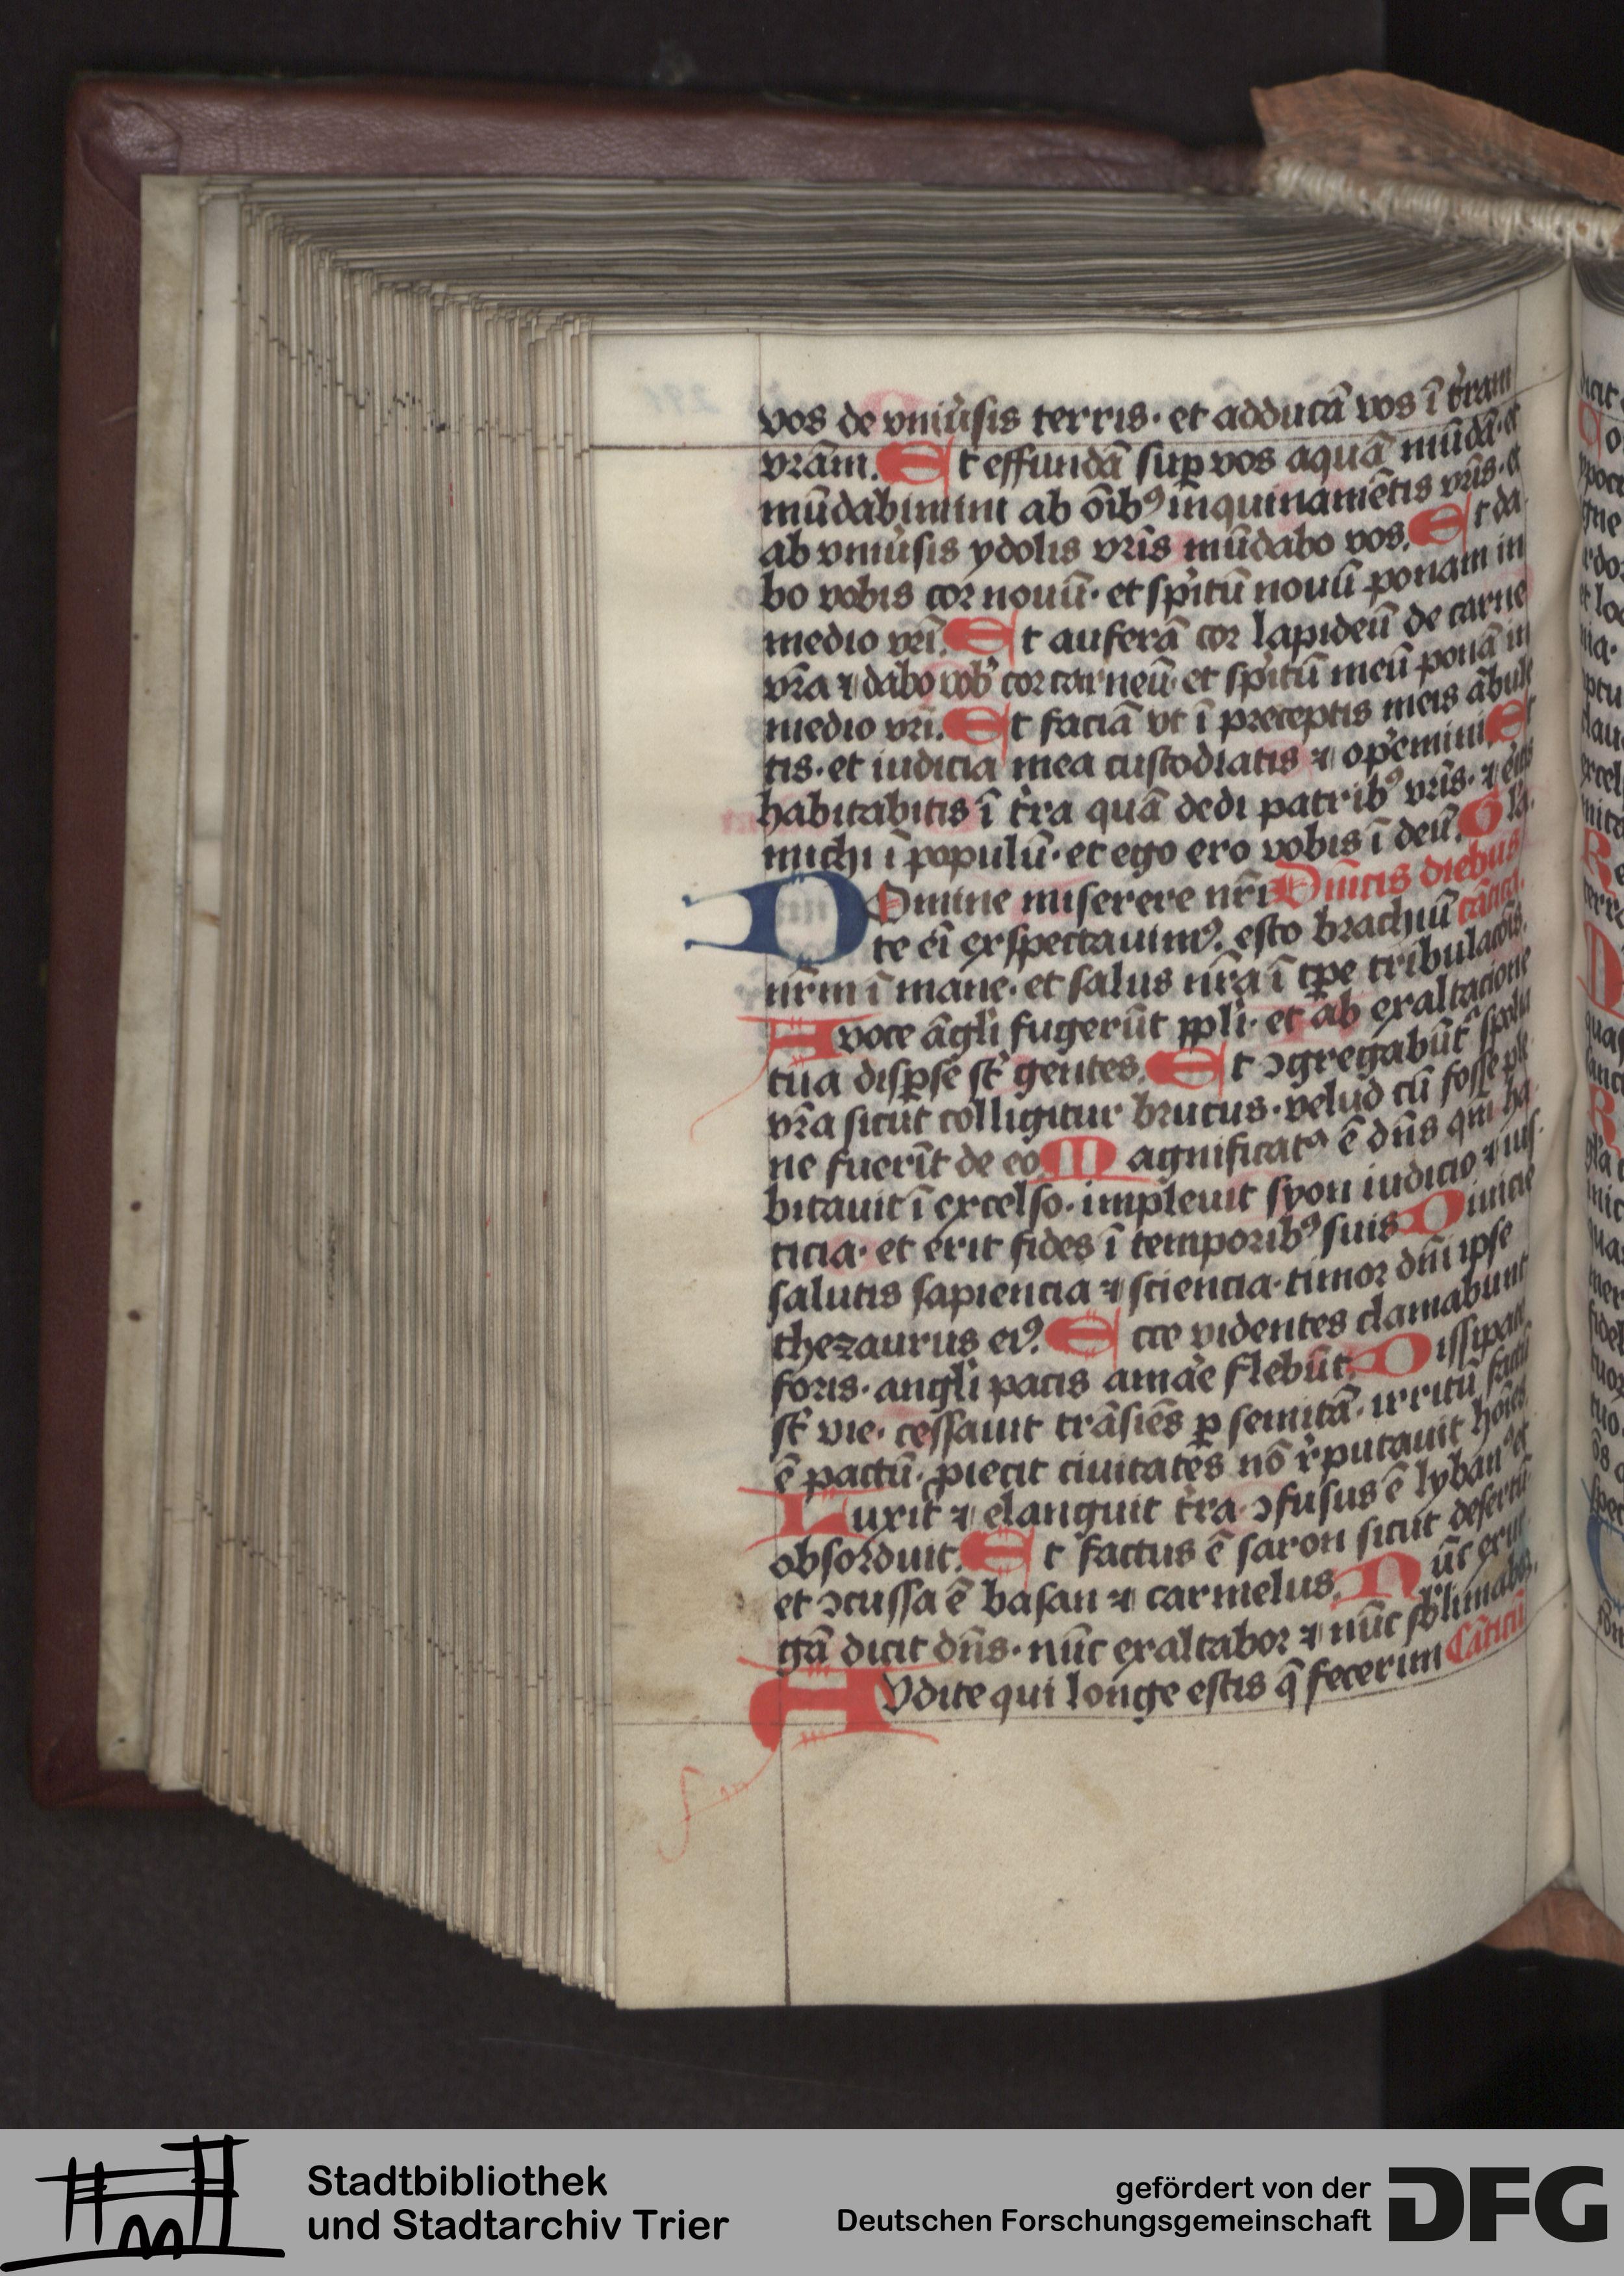 vos de vniu̓sis terris· et adducā vos ī tr̓am
vr̄am. Et effundā suꝑ vos aquā mūdā· et
mūdabimini ab oībꝰ inquinamētis vr̄is· et
ab vniu̓sis ydolis vr̄is mūdabo vos. Et da
bo vobis cor nouū· et sp̓itū nouū ponam in
medio vr̄i. Et auferā cor lapideū de carne
vr̄a ⁊ dabo vob̓ cor carneū· et sp̓itū meū ponā in
medio vr̄i. Et faciā vt ī preceptis meis ābule
tis· et iudicia mea custodiatis ⁊ op̓emini Et
habitabitis ī tr̓a quā dedi patribꝰ vr̄is· ⁊ e̓itis
michi ī populū· et ego ero vobis ī deū. Gla.
DOmine miserere nr̄i Dn̄icis diebus
te ei̅ exspectauimꝰ. esto brachiū cātica.
nr̄m ī mane· et salus nr̄a ī tp̄e tribulacōis.
A voce āgli fugerūt ppl̓i· et ab exaltacione
tua disꝑse st̄ gentes. Et ↄgregabūt᷑ spolia
vr̄a sicut colligitur brucus· velud cū fosse ple
ne fuerīt de eo Magnificatꝰ ē dn̄s qm̄ ha
bitauit ī excelso· impleuit syon iudicio ⁊ ius
ticia· et erit fides ī temporibꝰ suis Diuicie
salutis sapiencia ⁊ sciencia· timor dn̄i ipse
thezaurus eiꝰ. Ecce videntes clamabunt
foris· angl̓i pacis amar̓e flebūt. Dissipate
st̄ vie· cessauit trāsiēs ꝑ semitā· irritū factū
ē pactū· ꝓiecit ciuitates nō r̓putauit hoīes
Luxit ⁊ elanguit tr̓a ↄfusus ē lybanꝰ et
obsorduit. Et factus ē saron sicut desertū
et ↄcussa ē basan ⁊ carmelus. Nūc exur
gā dicit dn̄s· nūc exaltabor ⁊ nūc sb̓limabor.
AVdite qui longe estis q̄ fecerim Cāticū
Stadtbibliothek
und Stadtarchiv Trier
gefördert von der
Deutschen Forschungsgemeinschaft
DFG